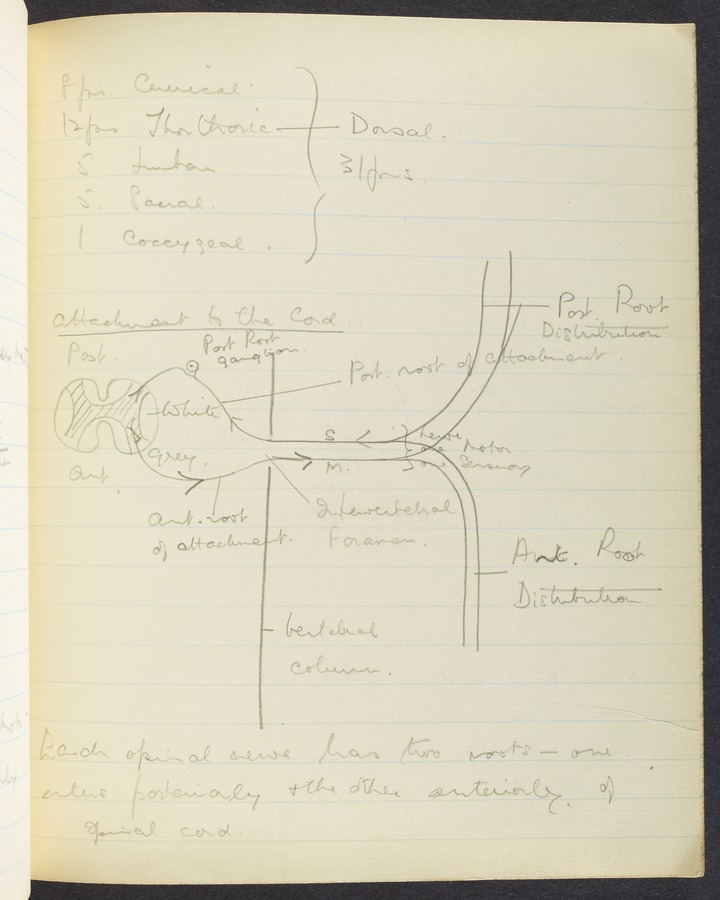 8 prs. Cervical.
12 prs Thorthoric — Dorsal.
5 Lumbar
31 prs
5. Sacral.
1 Coccygeal.
Attachment to the Cord.
Post.
Post Root
ganglion.
Post. Root
Distribution
Post. root of attachment.
White
S
nerve
one Motor
one Sensory
Grey.
M.
Ant.
Ant. root
of attachment.
Intervertebral
Foramen.
Ant. Root
Distribution
Vertebral
column.
Each spinal nerve has two roots — one
enters posteriorly & the other anteriorly of
spinal cord.